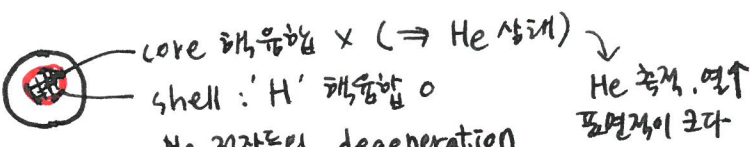 core 핵융합 × (⇒ He 상태)
shell : 'H' 핵융합 o
He 축적, 열↑
표면적이 크다
degeneration